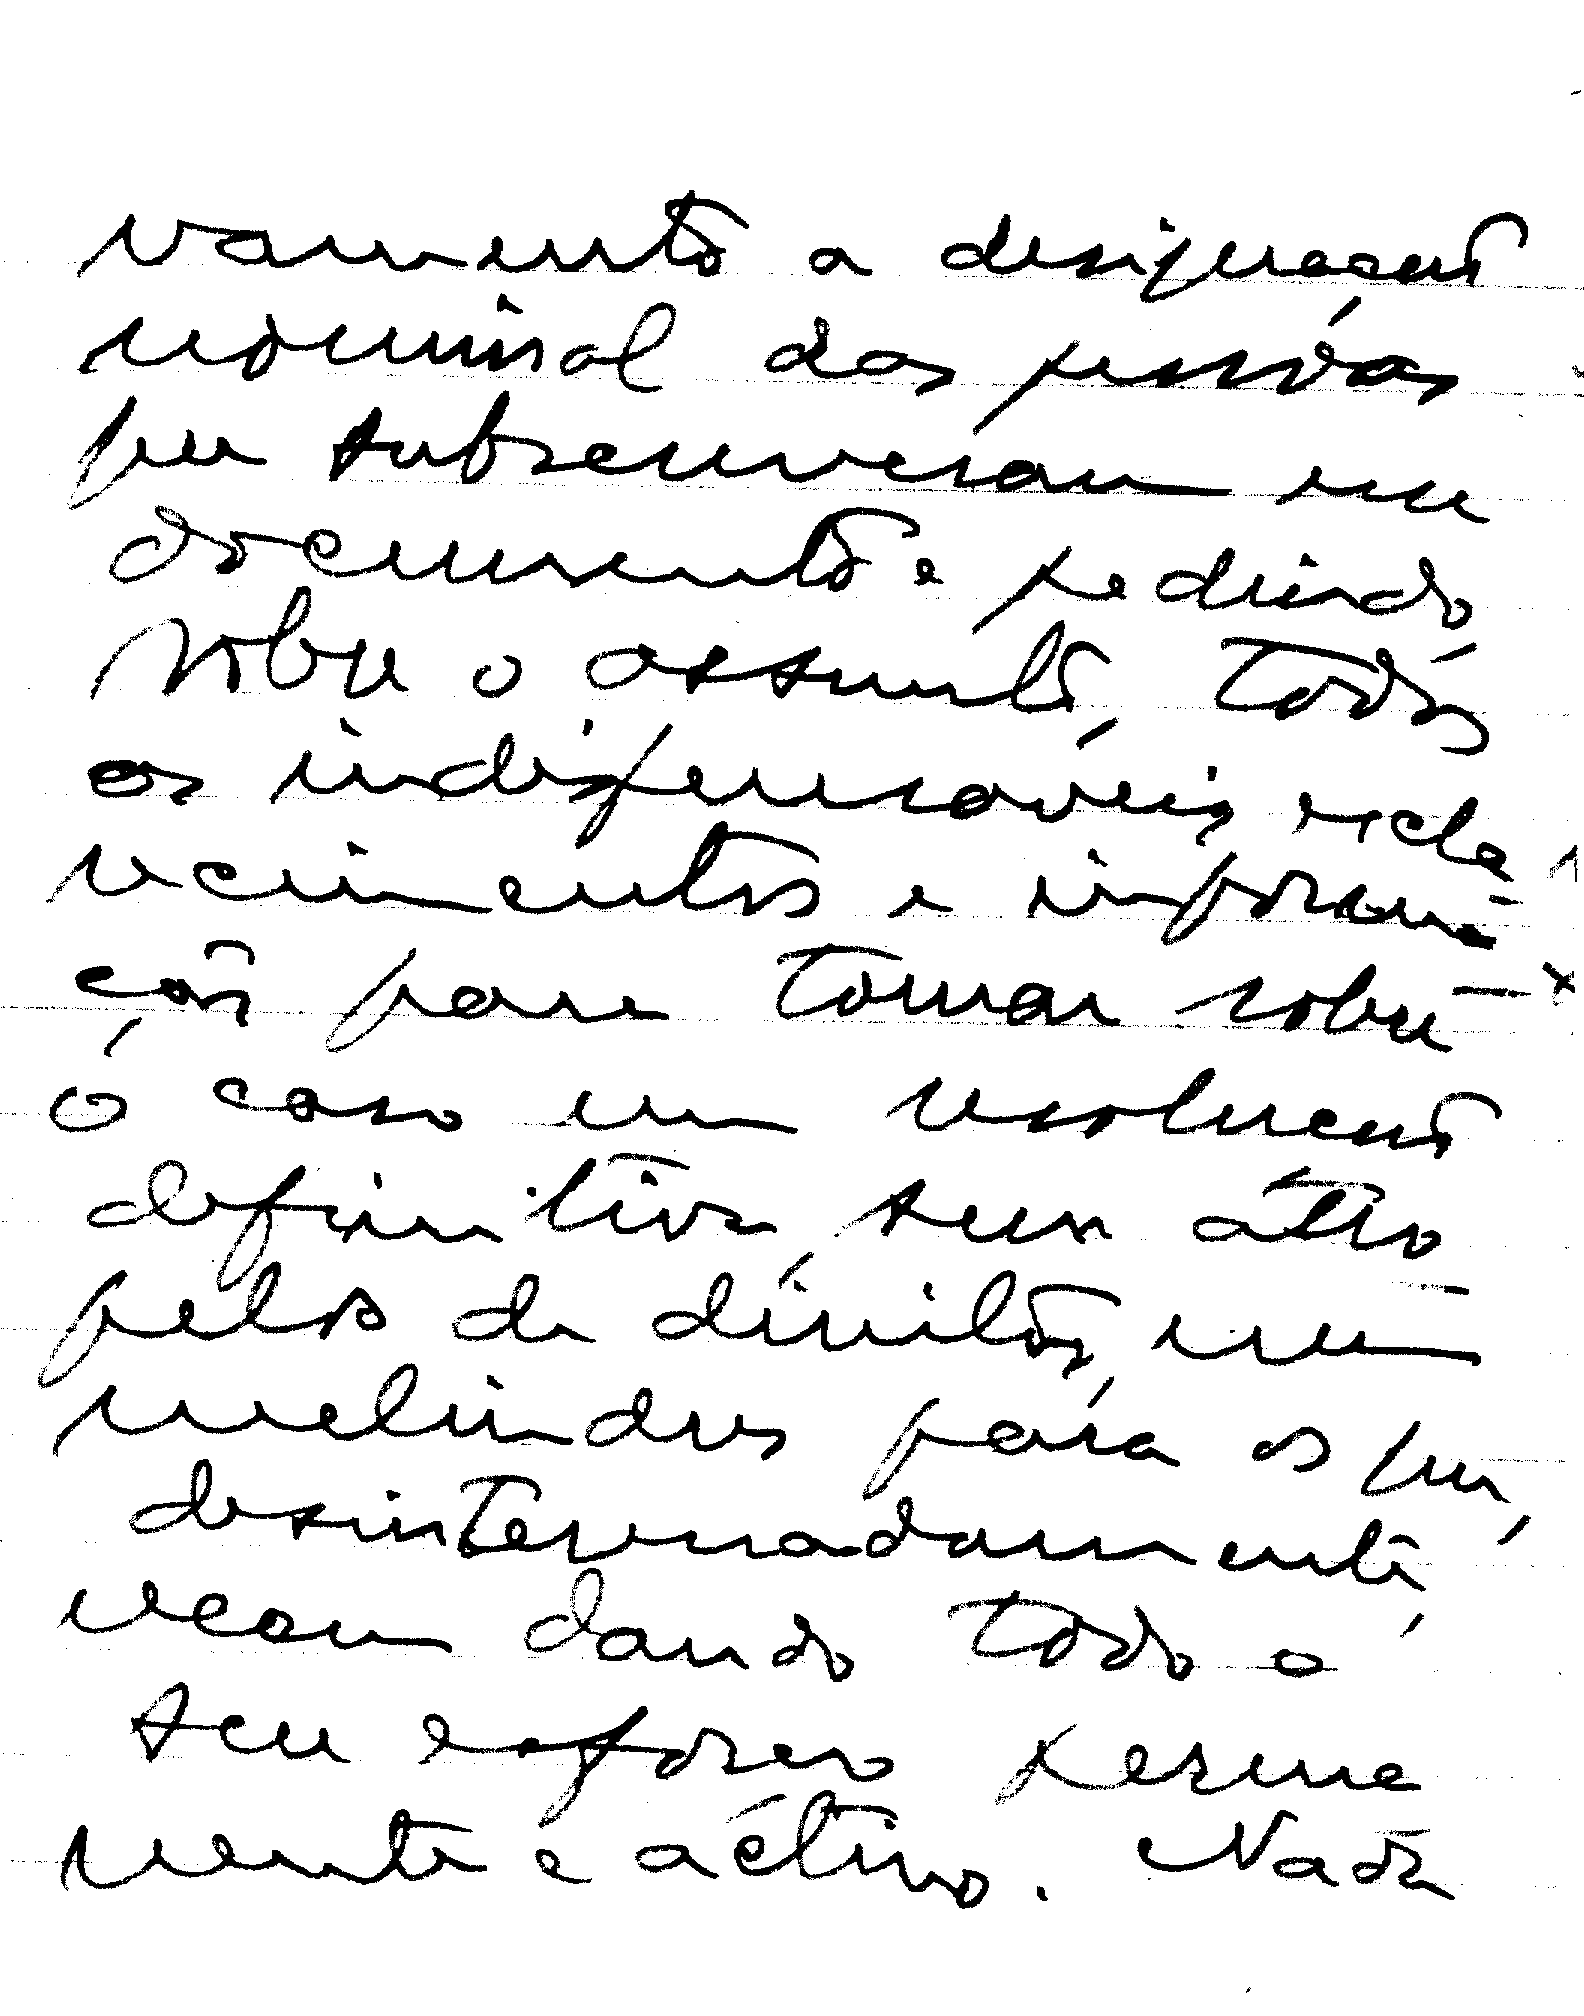 vamento a designação
nominal das pessôas,
que subscreveram um
documento e pedindo
sobre o assunto, todos
os indispensáveis escla
recimentos e informa-
ções para tomar sobre
o caso um resolução
definitiva, sem atro
pelos de direitos, nem
melindres para os que,
desinteressadamente,
vêem dando todo o
seu esforço perma
nente e activo. Nada